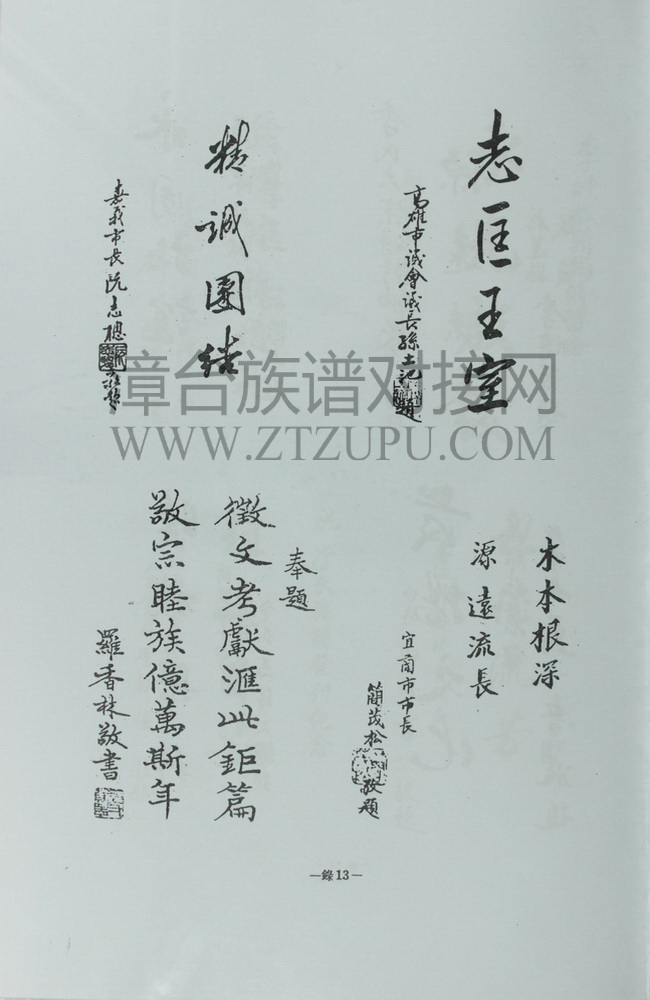 志匡王室
高雄市議會議長孫土池題
精誠團結
嘉義市長阮志聰敬題
漳台族谱对接网
WWW.ZTZUPU.COM
木本根深
源遠流長
宜蘭市市長
簡茂松敬題
奉題
徵文考獻滙此鉅篇
敬宗睦族億萬斯年
羅香林敬書
—錄13—